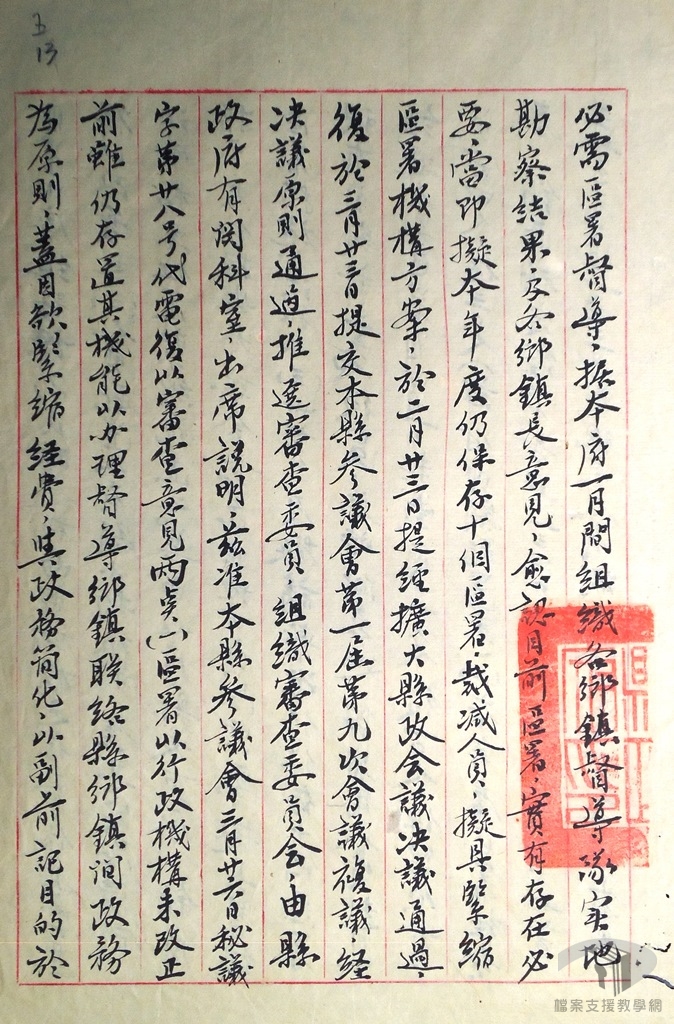 5
13
必需區署督導，据本府一月間組織各鄉鎮督導隊实地
勘察結果，及各鄉鎮長意見，愈認目前區署，實有存在必
要，當即擬本年度仍保存十個區署，裁減人員，擬具緊縮
區署機構方案，於二月廿三日提經擴大縣政会議决議通過，
復於三月廿三日提交本縣參議會第一屆第九次會議複議，経
决議原則通過，推選審查委員，組織審查委員会，由縣
政府有関科室，出席説明，茲准本縣參議會三月廿六日秘議
字第廿八号代電復以審查意見兩点(一)區署以行政機構未改正
前雖仍存置其機能以办理督導鄉鎮联络縣鄉鎮间政務
為原則，蓋目欲緊縮経費，與政務简化，以副前記目的於
檔案支援教學網